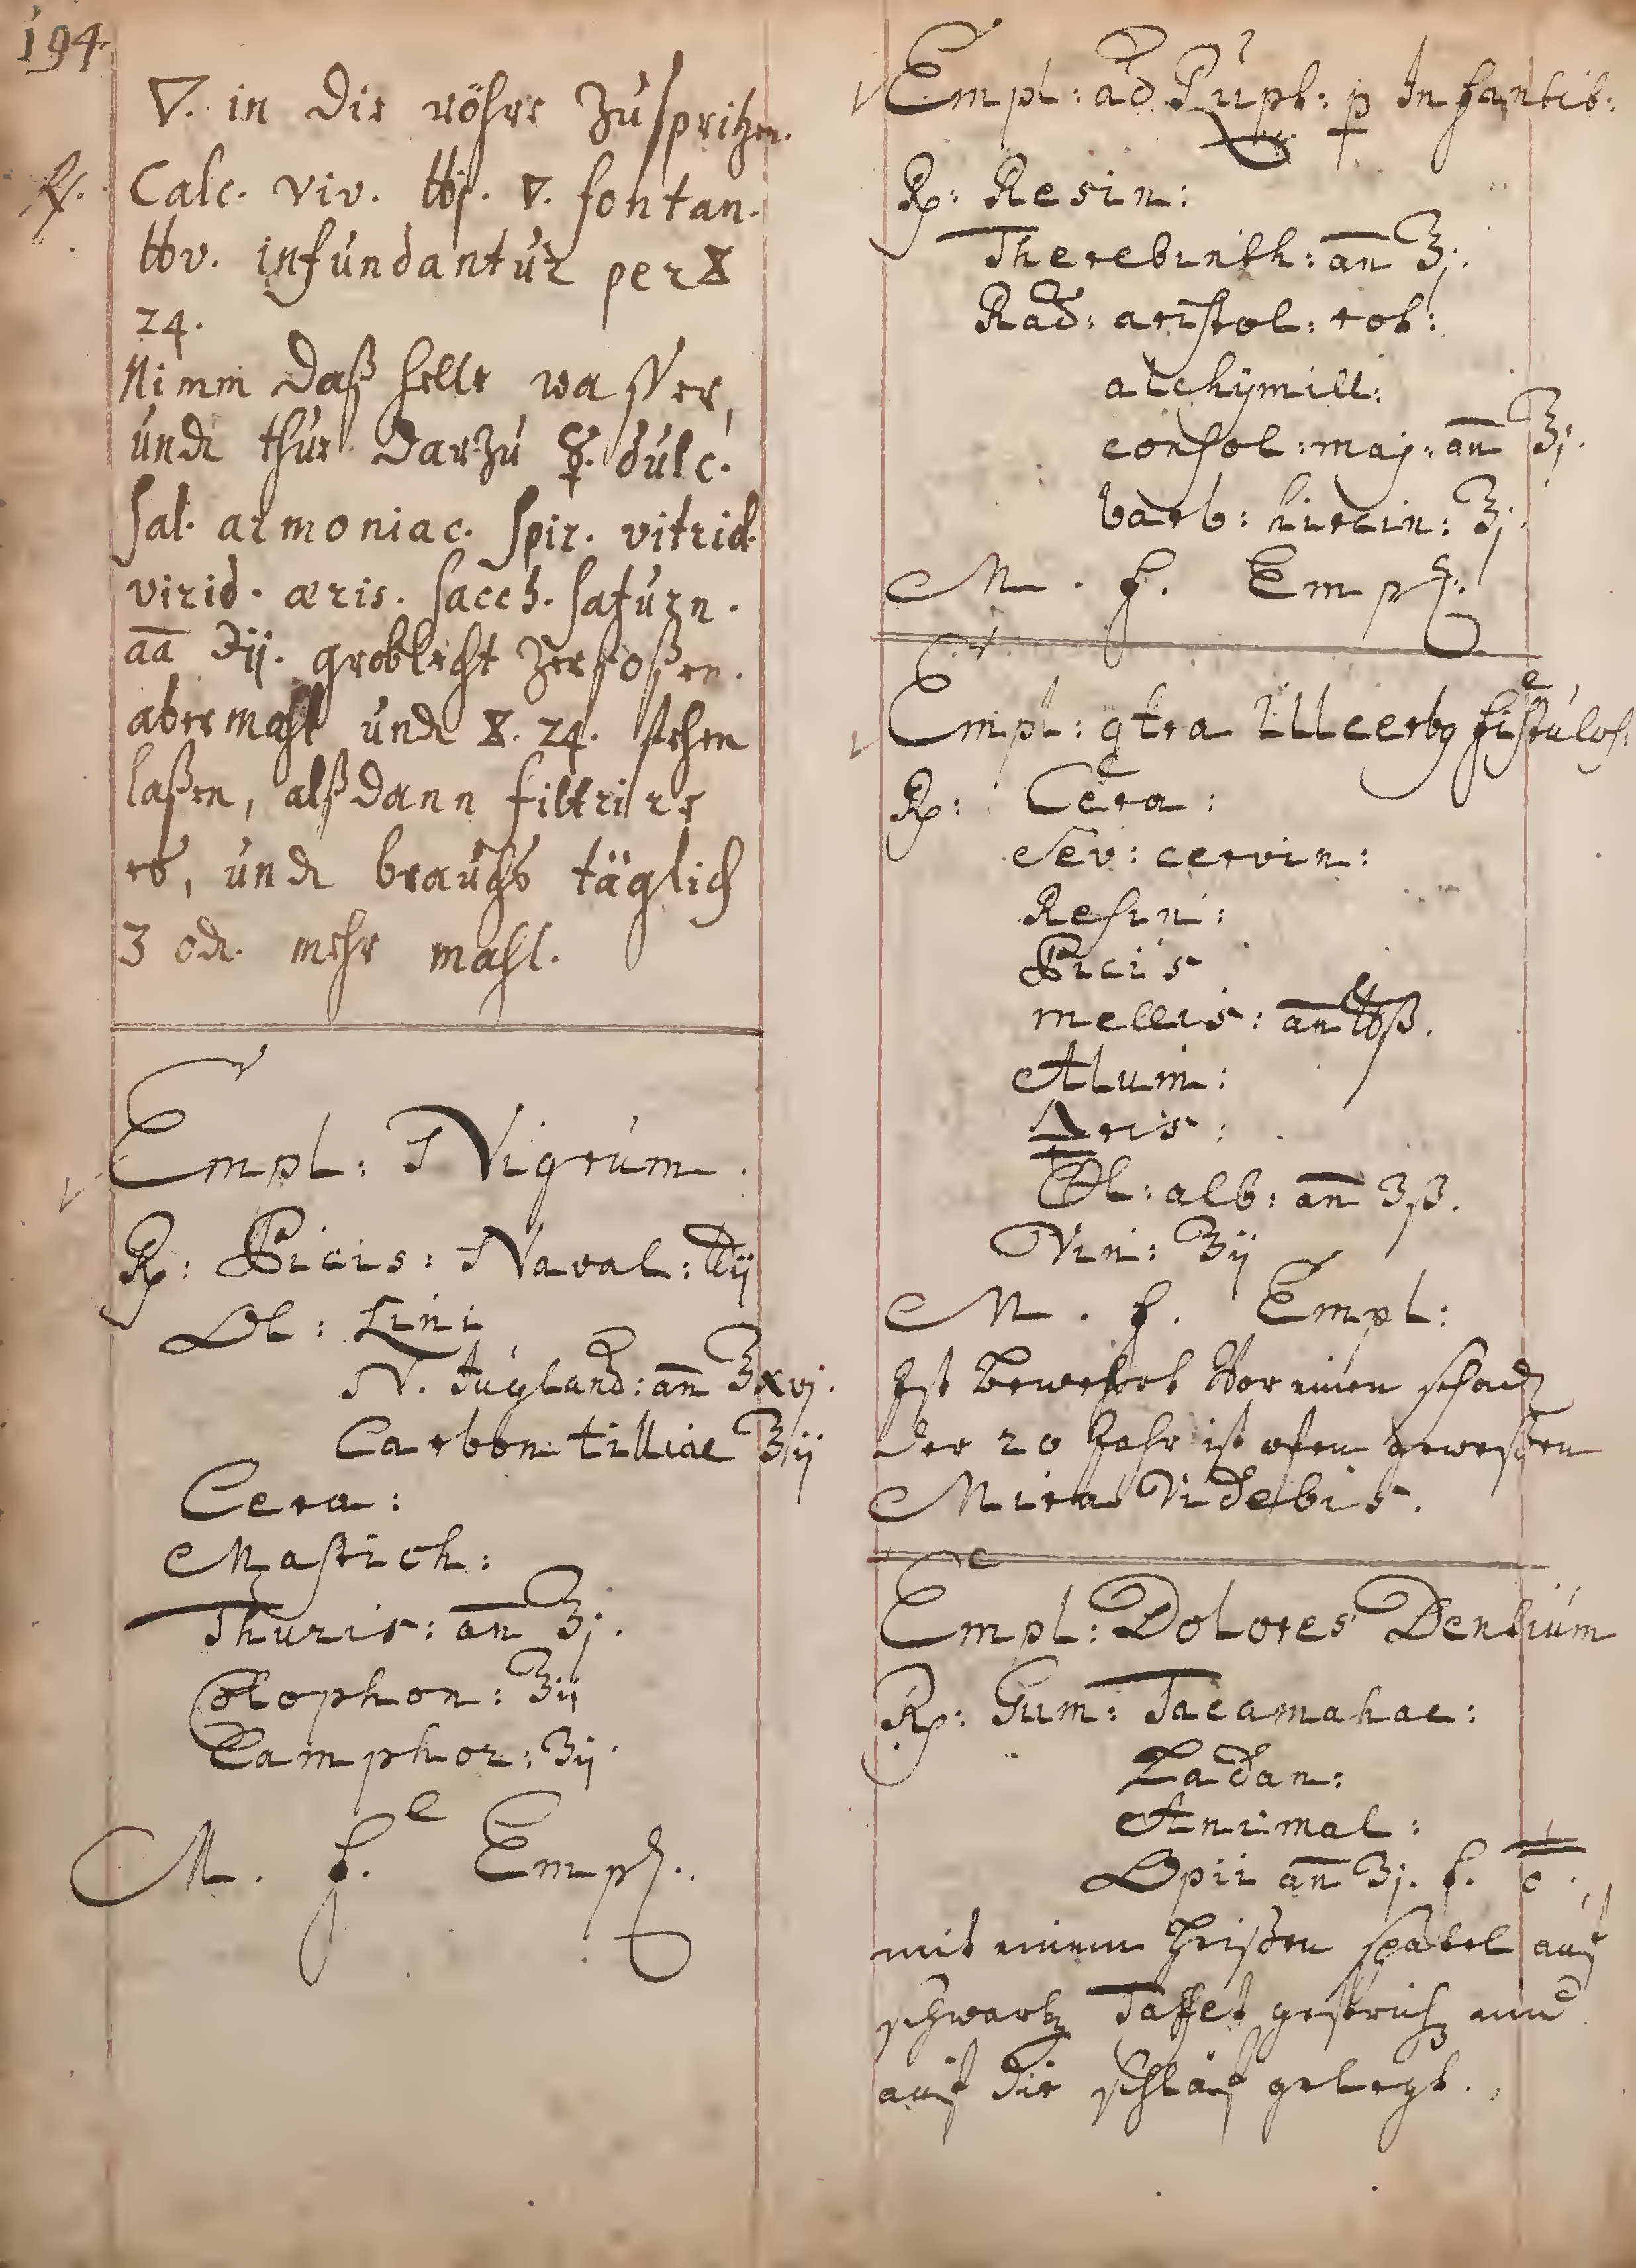 194
▽. in die röhre Zuspritzen.
℞. Calc. viv. ℔j. ▽. fontan.
℔v. infundantur per ⧖
24.
Nimm daß helle wasser,
und thue darzu ☿. dulc.
sal. armoniac. spir. vitriol.
virid. æris. sacch. saturn.
aa ʒij. groblicht zerstoßen.
abermahl und ⧖. 24. stehen
laßen, alßdann filtrire
es, und brauchs täglich
3 od. mehr mahl.
Empl: Nigrum.
Rp: Picis: Naval: ℔ij
Ol: Lini
N. Jugland: an ℥xvj.
Carbon tilliae ℥ij
Cera:
Mastich:
Thuris: an ℥j.
Colophon: ℥ij
Camphor: ʒij.
M. f. Empl.
Empl: ad Rupt: p Infantib:
Rp: Resin:
Therebinth: an ℥j.
Rad: aristol: rot:
alchymill:
consol: maj: an ℥j.
barb: hircin: ℥j.
M. f. Empl:
Empl: qtra Ulcerbq fistulos:
Rp: Cera:
Sev: cervin:
Resin:
Picis
mellis: an ℔ß.
Alum:
Aeris:
Ol: alb: an ʒß.
Vin: ℥ij
M. f. Empl:
Ist bewehrt Vor einen schad
der 20 Jahr ist ofen geweßen
Mira Videbis.
Empl: Dolores Dentium
Rp: Gum: Tacamahac:
Ladan:
Animal:
Opii an ʒj. f.
mit einem heißen spatel auf
schwartz Taffet gestrich und
auf die schläf gelegt.